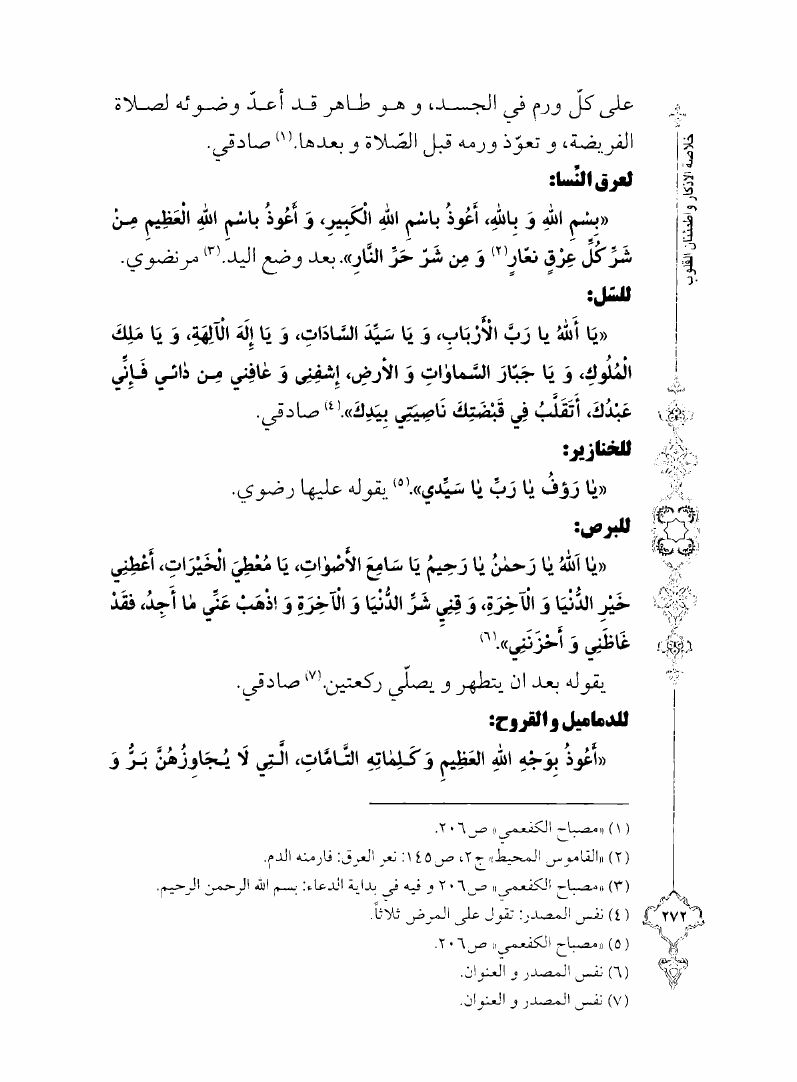 خلاصة الاذكار و اطمئنان القلوب
على كلّ ورم في الجسد، و هو طاهر قد أعدّ وضوئه لصلاة
الفريضة، و تعوّذ ورمه قبل الصّلاة و بعدها.(١) صادقي.
لعرق النِّسا:
«بِسْمِ اللهِ وَ بِاللهِ، أَعُوذُ بِاسْمِ اللهِ الْكَبِيرِ، وَ أَعُوذُ بِاسْمِ اللهِ الْعَظِيمِ مِنْ
شَرِّ كُلِّ عِرْقٍ نعّارٍ(٢) وَ مِن شَرّ حَرِّ النَّارِ». بعد وضع اليد.(٣) مرتضوي.
للسّل:
«يَا أَللهُ يا رَبَّ الْأَرْبَابِ، وَ يَا سَيِّدَ السَّادَاتِ، وَ يَا إِلَهَ الْآلِهَةِ، وَ يَا مَلِكَ
الْمُلُوكِ، وَ يَا جَبّارَ السَّماوٰاتِ وَ الأرضِ، إشفِنِى وَ عٰافِني مِن دٰائي فَإِنِّي
عَبْدُكَ، أَتَقَلَّبُ فِي قَبْضَتِكَ نَاصِيَتِي بِيَدِكَ».(٤) صادقي.
للخنازير:
«يٰا رَؤفُ يٰا رَبِّ يٰا سَيِّدي».(٥) يقوله عليها رضوي.
للبرص:
«يٰا اَللهُ يٰا رَحمٰنُ يٰا رَحِيمُ يَا سَامِعَ الأَصْوٰاتِ، يَا مُعْطِيَ الْخَيْرَاتِ، أَعْطِنِي
خَيْرِ الدُّنْيَا وَ الْآخِرَةِ، وَ قِنِي شَرَّ الدُّنْيَا وَ الْآخِرَةِ وَ اذْهَبْ عَنِّي مٰا أَجِدُ، فَقَدْ
غَاظَنِي وَ أَحْزَنَنِي».(٦)
يقوله بعد ان يتطهر و يصلّي ركعتين.(٧) صادقي.
للدماميل و القروح:
«أَعُوذُ بِوَجْهِ اللهِ العَظِيمِ وَ كَلِمٰاتِهِ التَّامَّاتِ، الَّتِي لَا يُجَاوِزُهُنَّ بَرُّ وَ
(١) «مصباح الكفعمي» ص٢٠٦.
(٢) «القاموس المحيط» ج٢، ص١٤٥: نعر العرق: فارمنه الدم.
(٣) «مصباح الكفعمي» ص٢٠٦ و فيه في بداية الدعاء: بسم الله الرحمن الرحيم.
(٤) نفس المصدر: تقول على المرض ثلاثاً.
(٥) «مصباح الكفعمي» ص٢٠٦.
(٦) نفس المصدر و العنوان.
(٧) نفس المصدر و العنوان.
٢٧٢